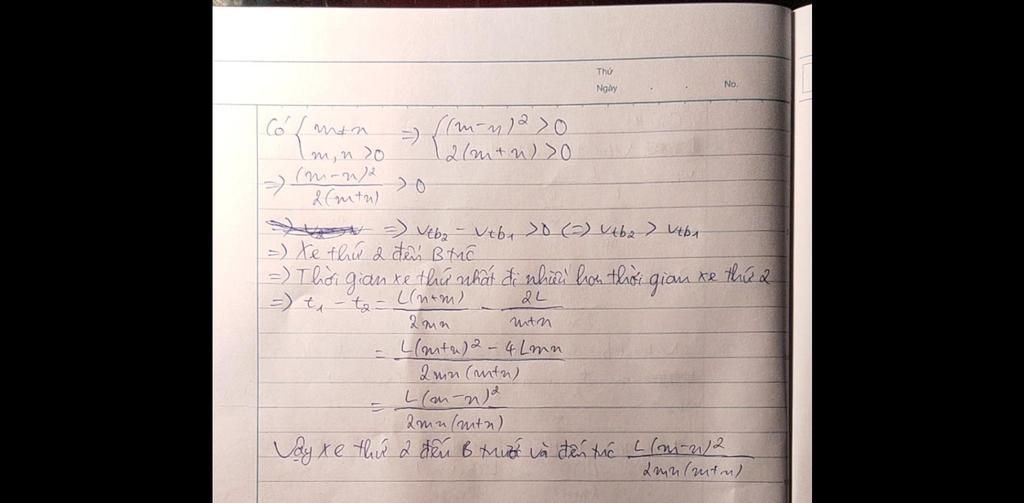 Thứ
Ngày . . No.
Có { m≠n => { (m-n)² >0
m, n >0 2(m+n) >0
=> (m-n)² / 2(m+n) >0
=> Vtb₂ - Vtb₁ >0 (=) Vtb₂ > Vtb₁
=) Xe thứ 2 đến B trc
=) Thời gian xe thứ nhất đi nhiều hơn thời gian xe thứ 2
=) t₁ - t₂ = L(n+m) / 2mn - 2L / m+n
= L(m+n)² - 4Lmn / 2mn(m+n)
= L(m-n)² / 2mn(m+n)
Vậy xe thứ 2 đến B trước và đến trc L(m-n)² / 2mn(m+n)